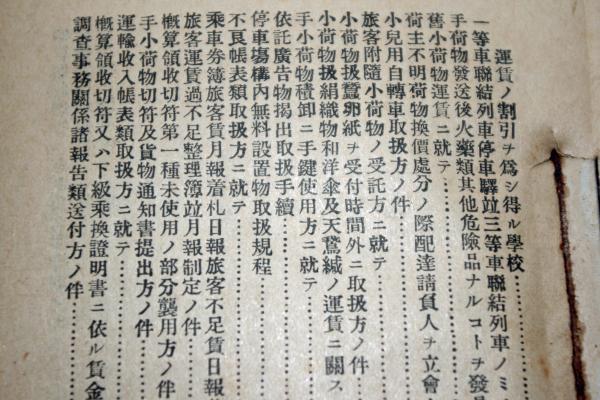 運賃ノ割引ヲ爲シ得ル學校
一等車聯結列車停車驛竝三等車聯結列車ノミ
手荷物發送後火藥類其他危險品ナルコトヲ發見
舊小荷物運賃ニ就テ
荷主不明荷物換價處分ノ際配達請負人ヲ立會
小兒用自轉車取扱方ノ件
旅客附隨小荷物ノ受託方ニ就テ
小荷物扱蠶卵紙ヲ受付時間外ニ取扱方ノ件
小荷物扱絹織物和洋傘及天鵞絨ノ運賃ニ關ス
手小荷物積卸ニ手鍵使用方ニ就テ
依託廣告物揭出取扱手續
停車場構內無料設置物取扱規程
不良帳表類取扱方ニ就テ
乘車券簿旅客賃月報着札日報旅客不足賃日報
旅客運賃過不足整理簿竝月報制定ノ件
槪算領收切符第一種未使用ノ部分襲用方ノ件
手小荷物切符及貨物通知書提出方ノ件
運輸收入帳表類取扱方ニ就テ
槪算領收切符又ハ下級乘換證明書ニ依ル賃金
調查事務關係諸報告類送付方ノ件